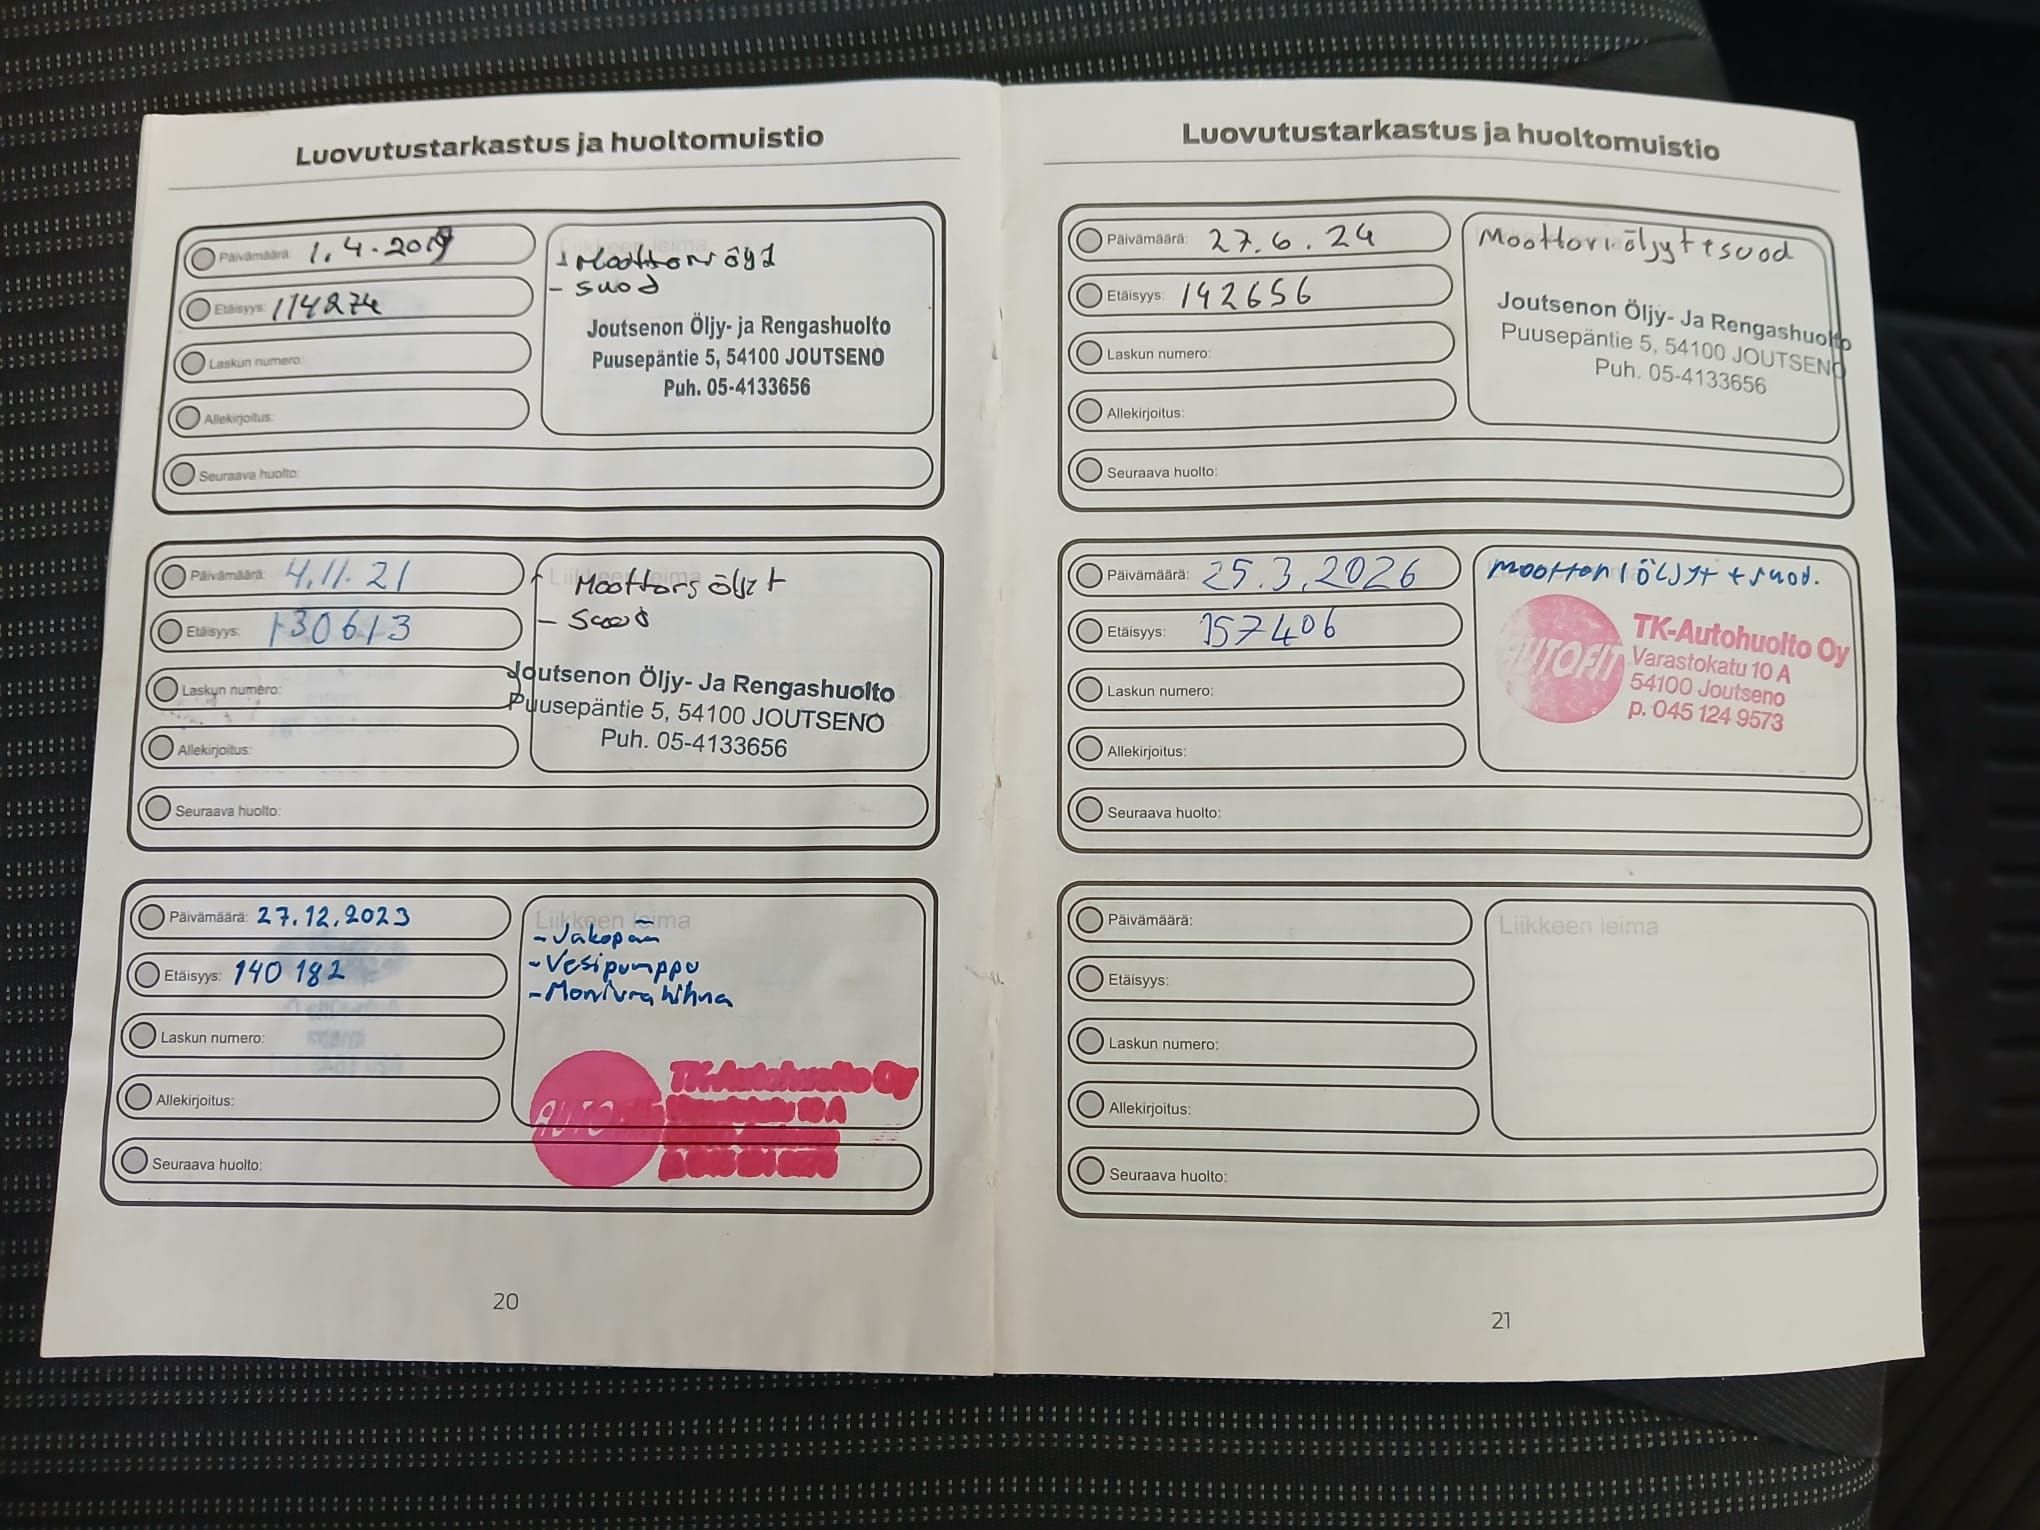 Luovutustarkastus ja huoltomuistio
Päivämäärä: 1.4.2019
Etäisyys: 114274
Laskun numero:
Allekirjoitus:
Seuraava huolto:
- Moottori öljt
- suod
Joutsenon Öljy- ja Rengashuolto
Puusepäntie 5, 54100 JOUTSENO
Puh. 05-4133656
Päivämäärä: 4.11.21
Etäisyys: 130613
Laskun numero:
Allekirjoitus:
Seuraava huolto:
Liikkeen leima
Moottori öljyt
- Suod
Joutsenon Öljy- Ja Rengashuolto
Puusepäntie 5, 54100 JOUTSENO
Puh. 05-4133656
Päivämäärä: 27.12.2023
Etäisyys: 140 182
Laskun numero:
Allekirjoitus:
Seuraava huolto:
Liikkeen leima
- Jakopää
- Vesipumppu
- Moniurahihna
AUTO
TK-Autohuolto Oy
10 A
20
Luovutustarkastus ja huoltomuistio
Päivämäärä: 27.6.24
Etäisyys: 142656
Laskun numero:
Allekirjoitus:
Seuraava huolto:
Moottori öljyt + suod
Joutsenon Öljy- Ja Rengashuolto
Puusepäntie 5, 54100 JOUTSENO
Puh. 05-4133656
Päivämäärä: 25.3.2026
Etäisyys: 157406
Laskun numero:
Allekirjoitus:
Seuraava huolto:
moottori öljyt + suod.
AUTOFIT
TK-Autohuolto Oy
Varastokatu 10 A
54100 Joutseno
p. 045 124 9573
Päivämäärä:
Etäisyys:
Laskun numero:
Allekirjoitus:
Seuraava huolto:
Liikkeen leima
21